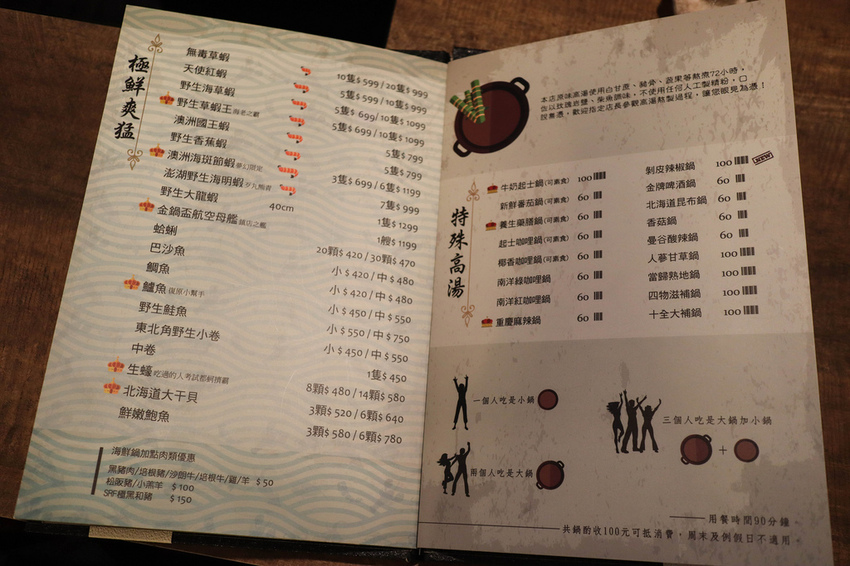 極鮮爽猛
無毒草蝦 10隻$ 599 / 20隻$ 999
天使紅蝦 5隻$ 599 / 10隻$ 999
野生海草蝦 5隻$ 699 / 10隻$ 1099
野生草蝦王 海老之霸 5隻$ 699 / 10隻$ 1099
澳洲國王蝦 5隻$ 799
野生香蕉蝦 5隻$ 799
澳洲海斑節蝦 夢幻限定 3隻$ 699 / 6隻$ 1199
澎湖野生海明蝦 7隻$ 999
野生大龍蝦 40cm 1隻$ 1299
金鍋盃航空母艦 鎮店之艦 1艘$ 1199
蛤蜊 20顆$ 420 / 30顆$ 470
巴沙魚 小 $ 420 / 中 $ 480
鯛魚 小 $ 420 / 中 $ 480
鱸魚 復原小幫手 小 $ 450 / 中 $ 550
野生鮭魚 小 $ 550 / 中 $ 750
東北角野生小卷 小 $ 450 / 中 $ 550
中卷 1隻$ 450
生蠔 吃過的人考試都蚵攢霸 8顆$ 480 / 14顆$ 580
北海道大干貝 3顆$ 520 / 6顆$ 640
鮮嫩鮑魚 3顆$ 580 / 6顆$ 780
海鮮鍋加點肉類優惠
黑豬肉/培根豬/沙朗牛/培根牛/雞/羊 $ 50
松阪豬/小羔羊 $ 100
SRF極黑和豬 $ 150
本店原味高湯使用白甘蔗、豬骨、蔬果等熬煮72小時，
佐以玫瑰岩鹽、柴魚調味，不使用任何人工製精粉，口
說無憑，歡迎指定店長參觀高湯熬製過程，讓您眼見為憑！
特殊高湯
牛奶起士鍋(可素食) 100
新鮮番茄鍋(可素食) 60
養生藥膳鍋(可素食) 60
起士咖哩鍋(可素食) 60
椰香咖哩鍋(可素食) 60
南洋綠咖哩鍋 60
南洋紅咖哩鍋 60
重慶麻辣鍋 60
剝皮辣椒鍋 100 NEW
金牌啤酒鍋 60
北海道昆布鍋 60
香菇鍋 60
曼谷酸辣鍋 60
人蔘甘草鍋 100
當歸熟地鍋 100
四物滋補鍋 100
十全大補鍋 100
一個人吃是小鍋
兩個人吃是大鍋
三個人吃是大鍋加小鍋
+
用餐時間90分鐘。
共鍋酌收100元可抵消費，周末及例假日不適用。